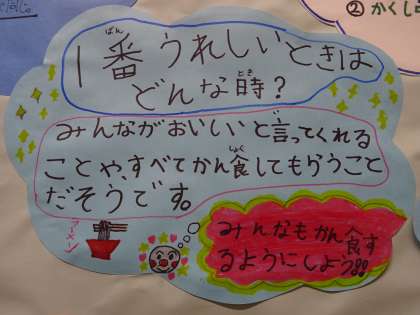 ② かくし
1番うれしいときは
どんな時？
みんながおいしいと言ってくれる
ことや、すべてかん食してもらうこと
だそうです。
ラーメン
みんなもかん食す
るようにしよう!!